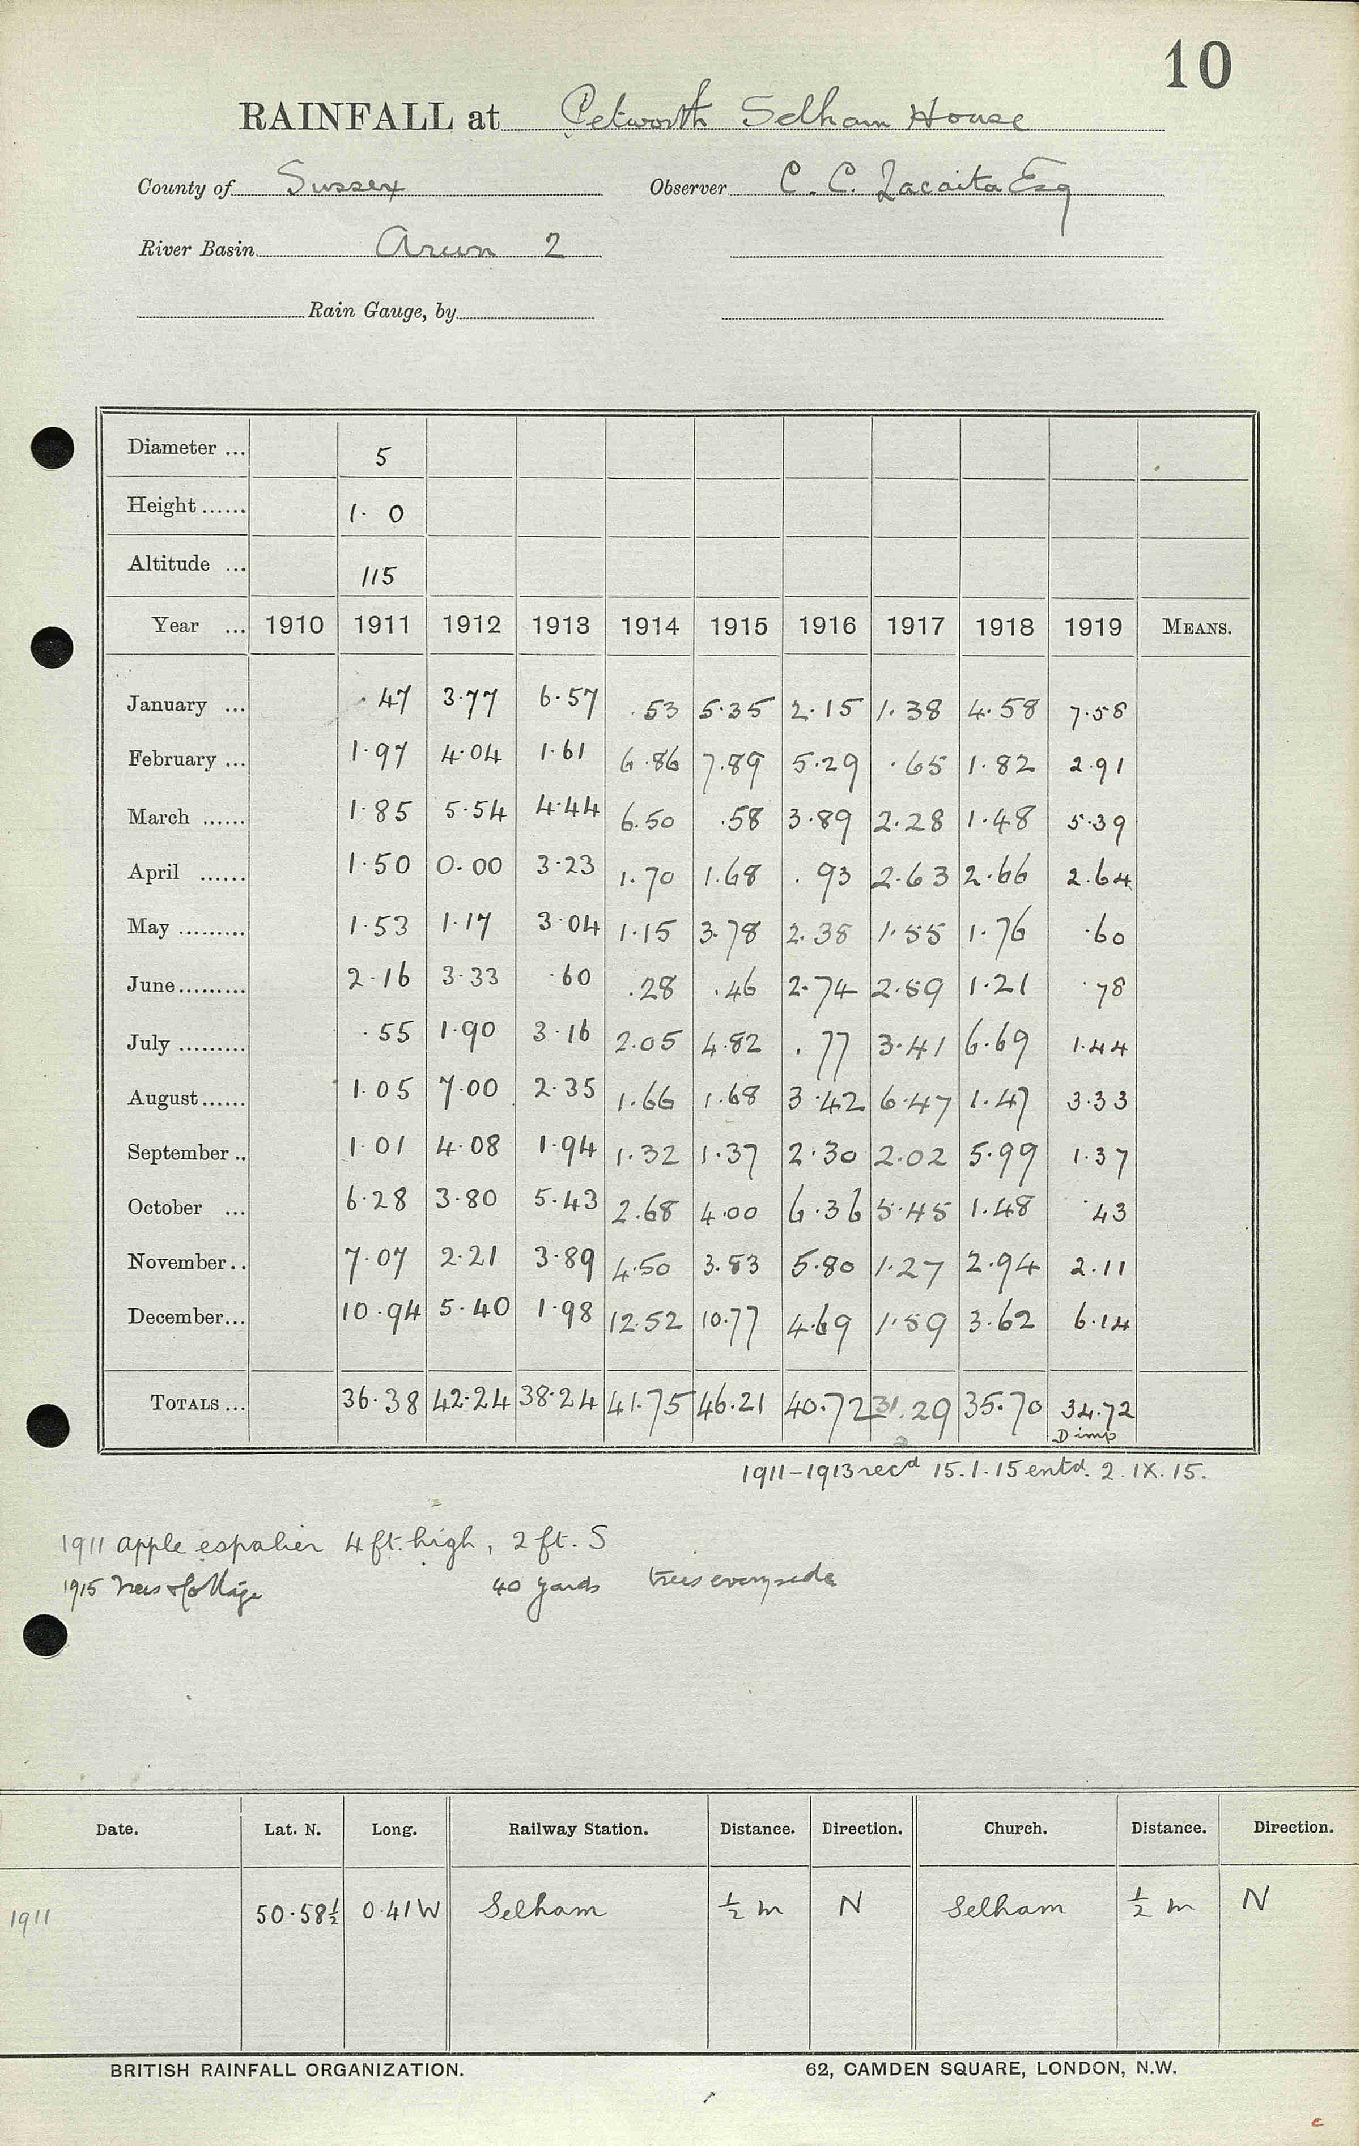 10
RAINFALL at Petworth Selham House
County of Sussex Observer C. C. Lacaita Esq
River Basin Arun 2
Rain Gauge, by
Diameter ... 5
Height ...... 1. 0
Altitude ... 115
Year ... 1910 1911 1912 1913 1914 1915 1916 1917 1918 1919 MEANS.
January ... .47 3.77 6.57 .53 5.35 2.15 1.38 4.58 7.58
February ... 1.97 4.04 1.61 6.86 7.89 5.29 .65 1.82 2.91
March ...... 1.85 5.54 4.44 6.50 .58 3.89 2.28 1.48 5.39
April ...... 1.50 0.00 3.23 1.70 1.68 .93 2.63 2.66 2.64
May ......... 1.53 1.17 3.04 1.15 3.78 2.38 1.55 1.76 .60
June......... 2.16 3.33 .60 .28 .46 2.74 2.59 1.21 .78
July ......... .55 1.90 3.16 2.05 4.82 .77 3.41 6.69 1.44
August...... 1.05 7.00 2.35 1.66 1.68 3.42 6.47 1.47 3.33
September .. 1.01 4.08 1.94 1.32 1.37 2.30 2.02 5.99 1.37
October ... 6.28 3.80 5.43 2.68 4.00 6.36 5.45 1.48 .43
November.. 7.07 2.21 3.89 4.50 3.83 5.80 1.27 2.94 2.11
December... 10.94 5.40 1.98 12.52 10.77 4.69 1.59 3.62 6.14
TOTALS ... 36.38 42.24 38.24 41.75 46.21 40.72 31.29 35.70 34.72
D imp
1911-1913 recd 15.1.15 entd. 2.IX.15.
1911 apple espalier 4 ft. high, 2 ft. S
1915 Trees & Cottage 40 yards trees every side
Date. Lat. N. Long. Railway Station. Distance. Direction. Church. Distance. Direction.
1911 50.58½ 0.41W Selham ½ m N Selham ½ m N
BRITISH RAINFALL ORGANIZATION. 62, CAMDEN SQUARE, LONDON, N.W.